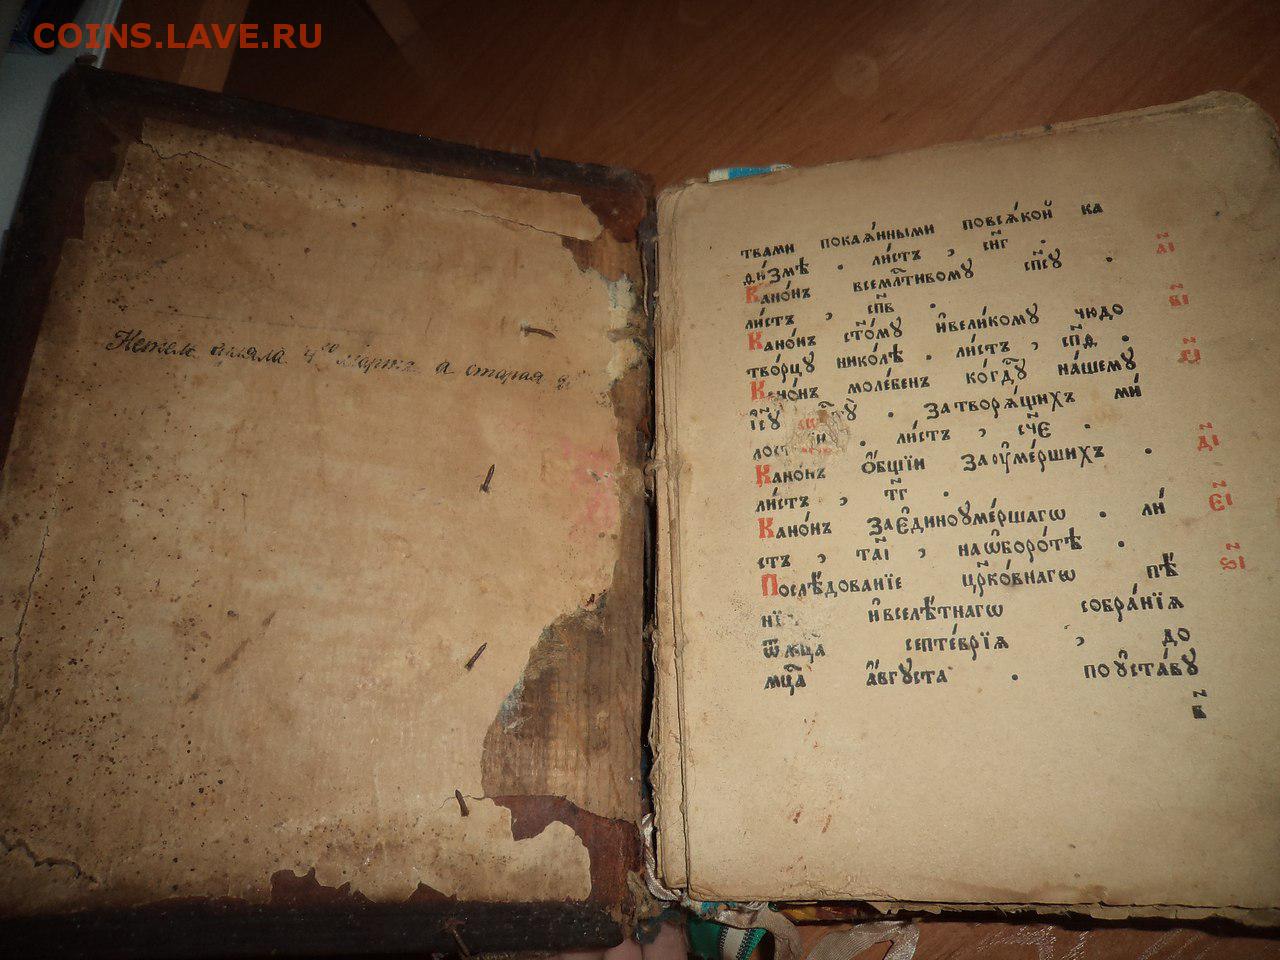 COINS.LAVE.RU
Нетель 4го марта а старая
твами покаѧ́нными повсѧ́кой ка
ди́змѣ . ли́стъ , сн҃г .
Кано́нъ всемлⷭ҇тивому сп҃сꙋ . а҃і
ли́стъ , сп҃в .
Кано́нъ ст҃о́мꙋ и҆вели́комꙋ чюдо в҃і
тво́рцꙋ нико́лѣ . ли́стъ , сп҃д .
Кано́нъ моле́бенъ ко́гдⷭ҇ꙋ на́шемꙋ г҃і
. затворѧ́щихъ ми́
. ли́стъ , сч҃є .
Кано́нъ ѻ҆́бщїи заꙋ҆ме́ршихъ . д҃і
ли́стъ , т҃г .
Кано́нъ зає҆диноꙋме́ршагѡ . ли́ є҃і
стъ , та҃і , наѡ҆боро́тѣ .
Послѣ́дованїе цр҃ко́внагѡ пѣ́ ѕ҃і
нї и҆вселѣ́тнагѡ собра́нїѧ
ѿмцⷭ҇а септе́врїѧ , до
мцⷭ҇а а҆́вгꙋста . поꙋ҆ста́вꙋ
в҃